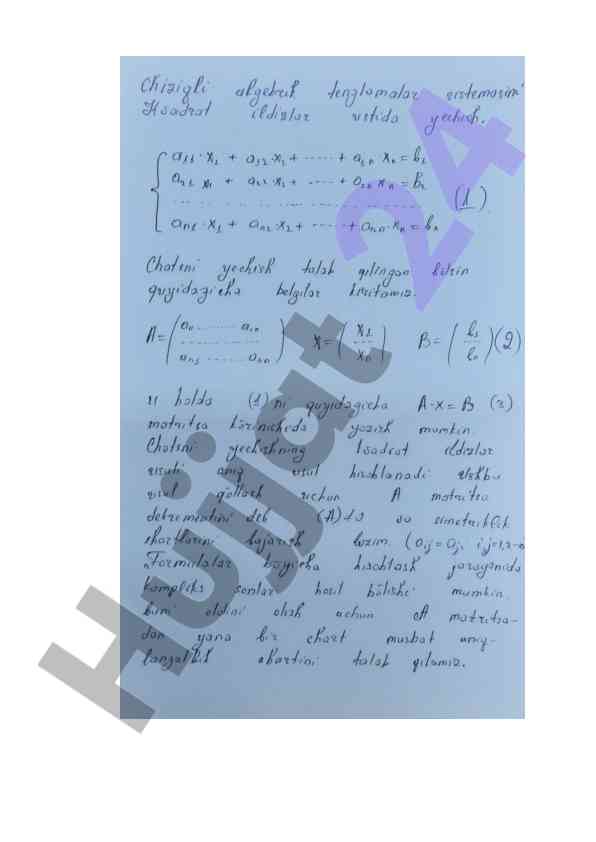 Chiziqli algebrik tenglamalar sistemasini
Kvadrat ildizlar ustida yechish.
a₁₁·x₁ + a₁₂·x₁ + ..... + a₁ₙ xₙ = b₁
a₂₁ x₁ + a₂₂·x₁ + ..... + a₂ₙ xₙ = B₂
(1)
aₙ₁·x₁ + aₙ₂·x₂ + ..... + aₙₙ·xₙ = bₙ
Chatsni yechish talab qilingan bilsin
quyidagicha belgilar kiritamiz.
A= X= B= (2)
u holda (1) ni quyidagicha A·x=B (3)
matritsa körinicheda yozish mumkin.
Chatsni yechishning kvadrat ildizlar
usuli aniq usul hisoblanadi Ushbu
usul qöllash uchun A matritsa
(A)≠0 simetriklik
shartlarini bajarish lozim.
Formulalar böyicha hisoblash jarayonida
kompliks sonlar hosil bölishi mumkin.
buni oldini olish uchun A matritsa-
dan yana bir chart musbat aniq-
langanlik shartini talab qilamiz.
Hujjat 24